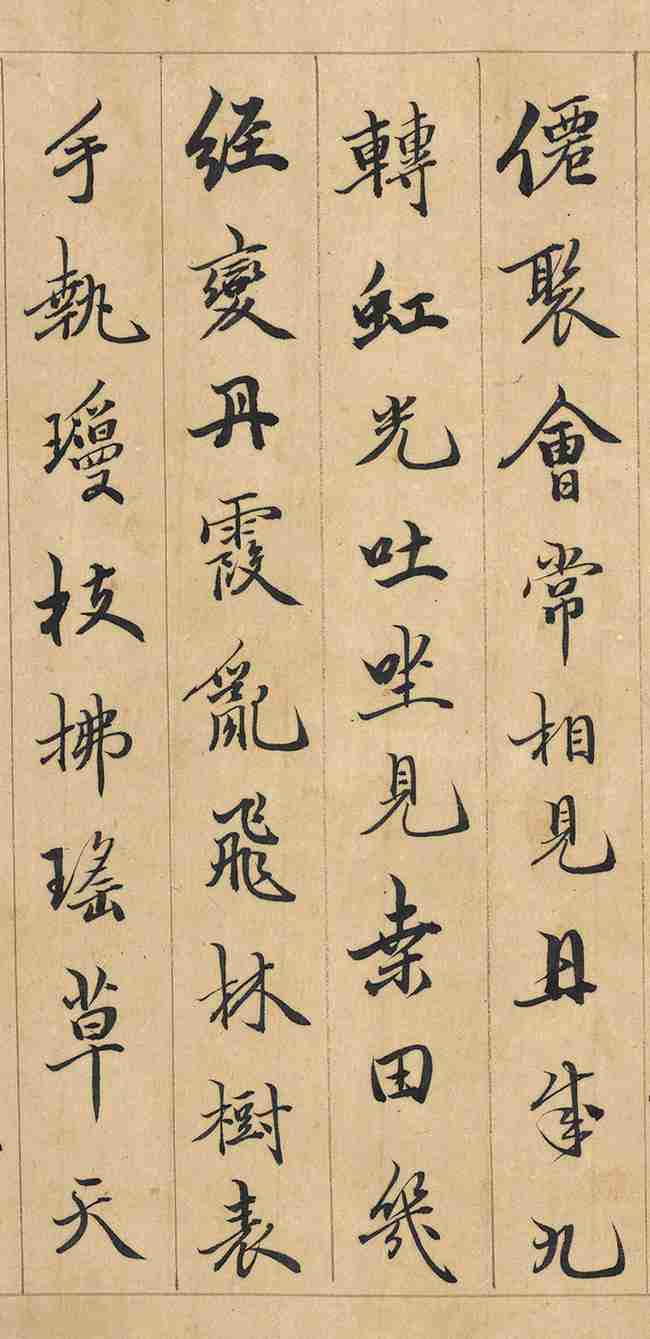 僊聚會常相見丹成九
轉虹光吐坐見桒田幾
經變丹霞亂飛林樹表
手執瓊枝拂瑤草天